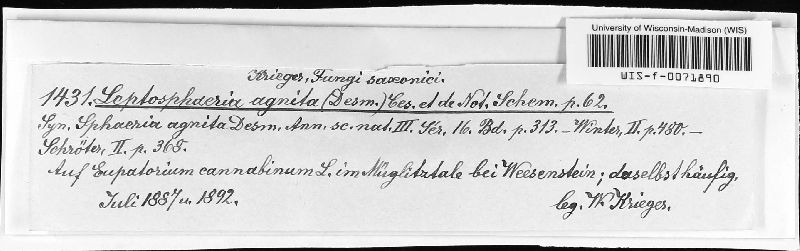 University of Wisconsin-Madison (WIS)
WIS-f-0071890
Krieger, Fungi saxonici.
1431. Leptosphaeria agnita (Desm.) Ces. et de Not. Schem. p. 62.
Syn. Sphaeria agnita Desm. Ann. sc. nat. III. Sér. 16. Bd. p. 313. – Winter, II. p. 480. –
Schröter, II. p. 365.
Auf Eupatorium cannabinum L. im Müglitztale bei Weesenstein; daselbst häufig.
Juli 1887 u. 1892.
leg. W. Krieger.